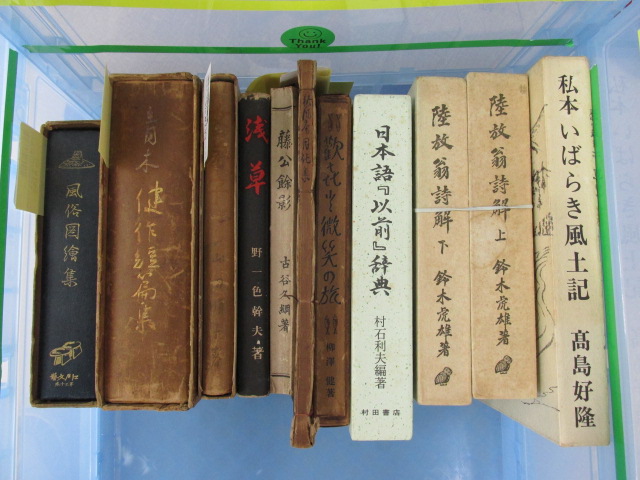 Thank You!
風俗図繪集
健作短篇集
浅草
野一色幹夫・著
藤公餘影
古谷久綱著
歓喜と微笑の旅
柳澤健著
日本語『以前』辞典
村石利夫編著
村田書店
陸放翁詩解 下
鈴木虎雄著
陸放翁詩解 上
鈴木虎雄著
私本いばらき風土記
髙島好隆